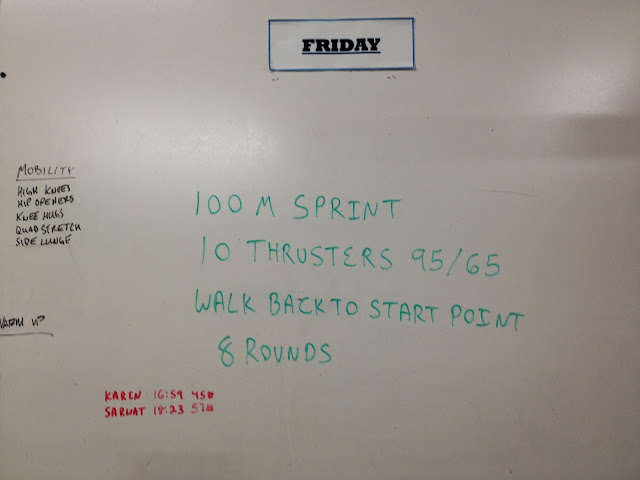 FRIDAY
MOBILITY
HIGH KNEES
HIP OPENERS
KNEE HUGS
QUAD STRETCH
SIDE LUNGE
100 M SPRINT
10 THRUSTERS 95/65
WALK BACK TO START POINT
8 ROUNDS
WARM UP
KAREN 16:59 45#
SARWAT 18:23 57#